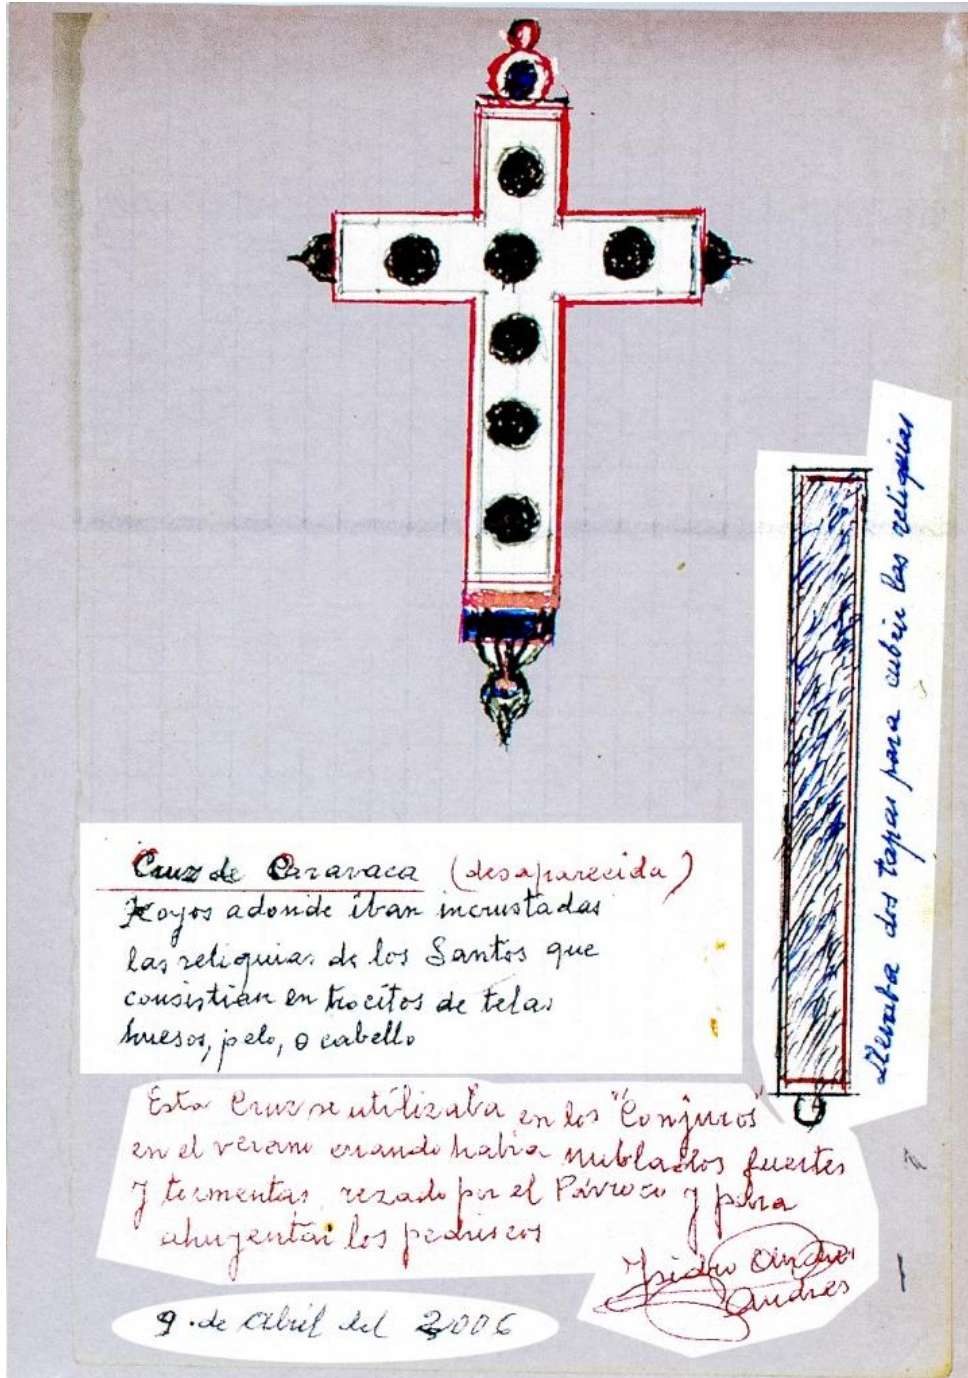 Cruz de Caravaca (desaparecida)
Hoyos adonde iban incrustadas
las reliquias de los Santos que
consistian en trocitos de telas
huesos, pelo, o cabello
Llevaba dos tapas para cubrir las reliquias
Esta Cruz se utilizaba en los "Conjuros"
en el verano cuando habia nublados fuertes
y tormentas, rezado por el Párroco y para
ahuyentar los pedriscos
Isidro Andres
Andres
9 · de Abril del 2006